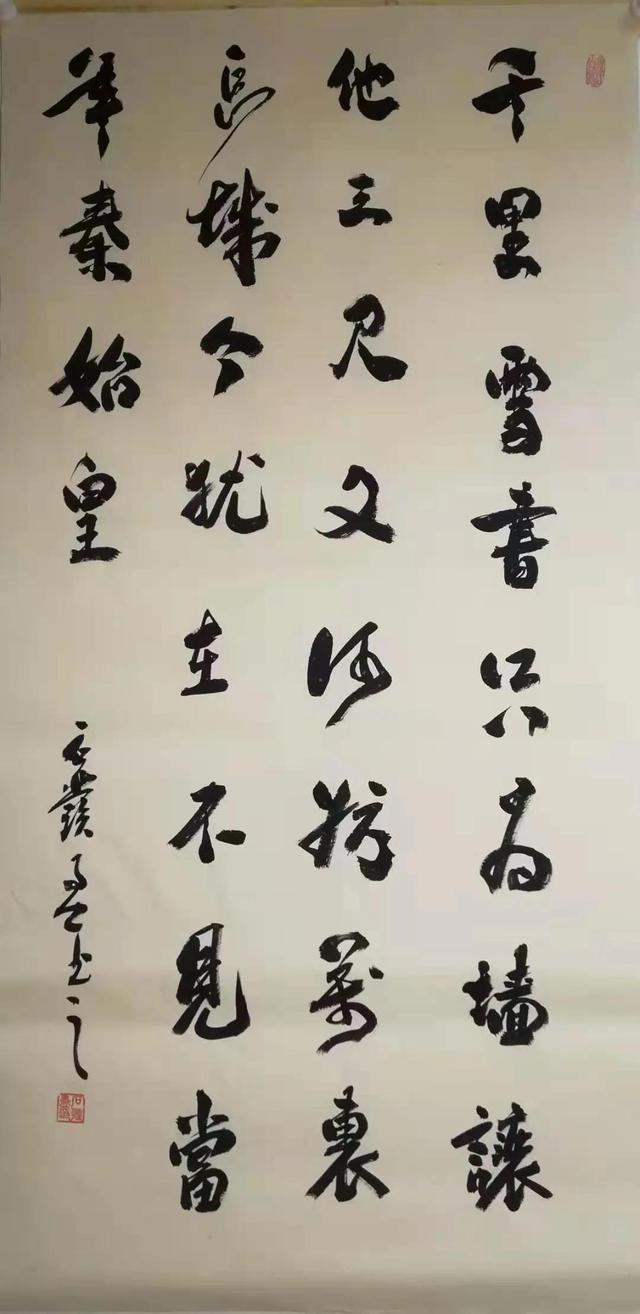 千里雪書只為墙讓
他三尺又何妨萬裏
長城今猶在不見當
年秦始皇
書之